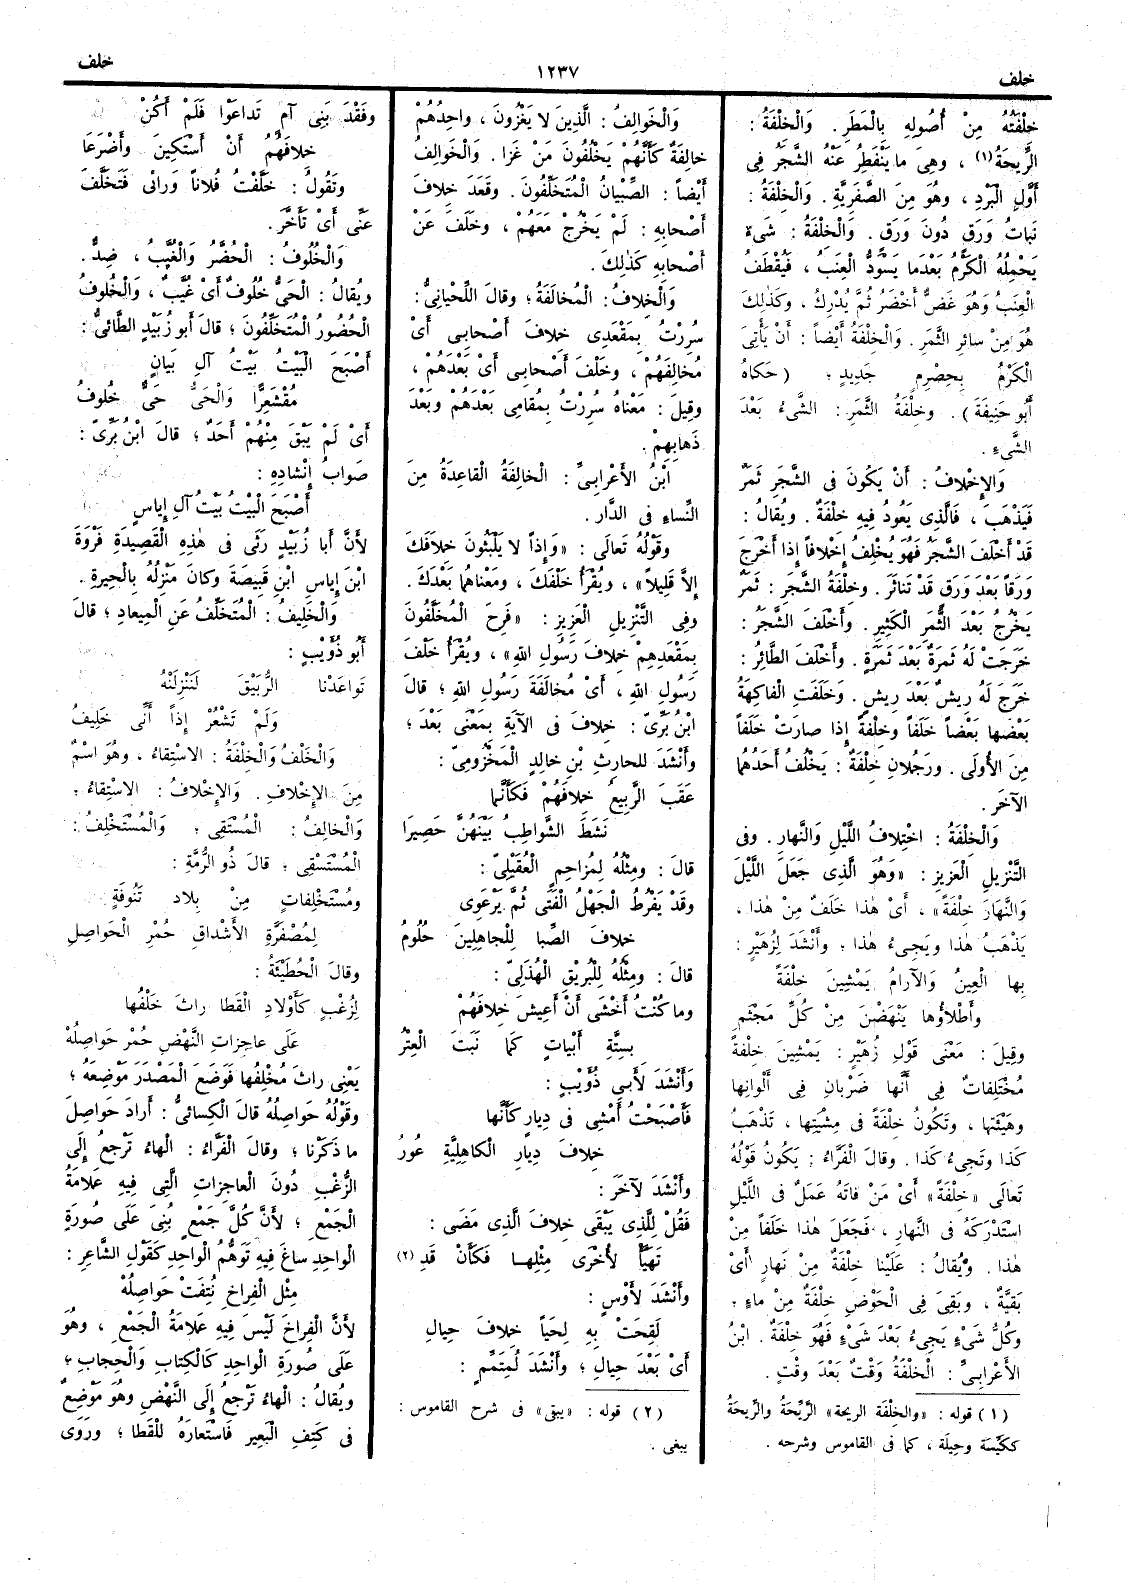 خلف
١٢٣٧
خلف
خِلْفَتُهُ مِنْ أُصُولِهِ بِالْمَطَرِ. وَالْخِلْفَةُ :
الرِّيحَةُ (١) ، وَهِيَ مايَنْفَطِرُ عَنْهُ الشَّجَرُ فِى
أَوَّلِ الْبَرْدِ ، وَهُوَ مِنَ الصَّفَرِيَّةِ. وَالْخِلْفَةُ :
نَباتُ وَرَقٍ دُونَ وَرَقٍ. وَالْخِلْفَةُ : شَىْءٌ
يَحْمِلُهُ الْكَرْمُ بَعْدَما يَسْوَدُّ الْعِنَبُ ، فَيُقْطَفُ
الْعِنَبُ وَهُوَ غَضٌّ أَخْضَرُ ثُمَّ يُدْرِكُ ، وَكَذٰلِكَ
هُوَ مِنْ سائِرِ الثَّمَرِ. وَالْخِلْفَةُ أَيْضاً : أَنْ يَأْتِىَ
الْكَرْمُ بِحِصْرِمٍ جَدِيدٍ ؛ (حَكاهُ
أَبُو حَنِيفَةَ) . وَخِلْفَةُ الثَّمَرِ : الشَّىْءُ بَعْدَ
الشَّىْءِ .
وَالإِخْلافُ : أَنْ يَكُونَ فى الشَّجَرِ ثَمَرٌ
فَيَذْهَبَ ، فَالَّذِى يَعُودُ فِيهِ خِلْفَةٌ . وَيُقالُ :
قَدْ أَخْلَفَ الشَّجَرُ فَهُوَ يُخْلِفُ إِخْلافاً إِذا أَخْرَجَ
وَرَقاً بَعْدَ وَرَقٍ قَدْ تَناثَرَ . وَخِلْفَةُ الشَّجَرِ : ثَمَرٌ
يَخْرُجُ بَعْدَ الثَّمَرِ الْكَثِيرِ . وَأَخْلَفَ الشَّجَرُ :
خَرَجَتْ لَهُ ثَمَرَةٌ بَعْدَ ثَمَرَةٍ . وَأَخْلَفَ الطَّائِرُ :
خَرَجَ لَهُ رِيشٌ بَعْدَ رِيشٍ . وَخَلَفَتِ الْفاكِهَةُ
بَعْضُها بَعْضاً خَلَفاً وَخِلْفَةً إِذا صارَتْ خَلَفاً
مِنَ الأُولَى . وَرَجُلانِ خِلْفَةٌ : يَخْلُفُ أَحَدُهُما
الآخَرَ .
وَالْخِلْفَةُ : اخْتِلافُ اللَّيْلِ وَالنَّهارِ . وَفى
التَّنْزِيلِ الْعَزِيزِ : «وَهُوَ الَّذِى جَعَلَ اللَّيْلَ
وَالنَّهارَ خِلْفَةً» ، أَىْ هٰذا خَلَفٌ مِنْ هٰذا ،
يَذْهَبُ هٰذا وَيَجِىءُ هٰذا ؛ وَأَنْشَدَ لِزُهَيْرٍ :
بِها الْعِينُ وَالآرامُ يَمْشِينَ خِلْفَةً
وَأَطْلاؤُها يَنْهَضْنَ مِنْ كُلِّ مَجْثَمِ
وَقِيلَ : مَعْنَى قَوْلِ زُهَيْرٍ : يَمْشِينَ خِلْفَةً
مُخْتَلِفاتٌ فِى أَنَّها ضَرْبانِ فِى أَلْوانِها
وَهَيْئَتِها ، وَتَكُونُ خِلْفَةً فى مِشْيَتِها ، تَذْهَبُ
كَذا وَتَجِىءُ كَذا . وَقالَ الْفَرَّاءُ : يَكُونُ قَوْلُهُ
تَعالَى «خِلْفَةً» أَىْ مَنْ فاتَهُ عَمَلٌ فى اللَّيْلِ
اسْتَدْرَكَهُ فى النَّهارِ ، فَجَعَلَ هٰذا خَلَفاً مِنْ
هٰذا . وَيُقالُ : عَلَيْنا خِلْفَةٌ مِنْ نَهارٍ أَىْ
بَقِيَّةٌ ، وَبَقِىَ فِى الْحَوْضِ خِلْفَةٌ مِنْ ماءٍ ؛
وَكُلُّ شَىْءٍ يَجِىءُ بَعْدَ شَىْءٍ فَهُوَ خِلْفَةٌ . ابْنُ
الأَعْرابِىِّ : الْخِلْفَةُ وَقْتٌ بَعْدَ وَقْتٍ .
(١) قوله : «والخلفة الريحة» الرَّيِّحَةُ والرِّيحَةُ
ككَيِّسَة وحِيلَة ، كما فى القاموس وشرحه .
وَالْخَوالِفُ : الَّذِينَ لا يَغْزُونَ ، واحِدُهُمْ
خالِفَةٌ كَأَنَّهُمْ يَخْلُفُونَ مَنْ غَزا . وَالْخَوالِفُ
أَيْضاً : الصِّبْيانُ الْمُتَخَلِّفُونَ . وَقَعَدَ خِلافَ
أَصْحابِهِ : لَمْ يَخْرُجْ مَعَهُمْ ، وَخَلَفَ عَنْ
أَصْحابِهِ كَذٰلِكَ .
وَالْخِلافُ : الْمُخالَفَةُ ؛ وَقالَ اللِّحْيانِىُّ :
سُرِرْتُ بِمَقْعَدِى خِلافَ أَصْحابِى أَىْ
مُخالِفَهُمْ ، وَخَلْفَ أَصْحابِى أَىْ بَعْدَهُمْ ،
وَقِيلَ : مَعْناهُ سُرِرْتُ بِمُقامِى بَعْدَهُمْ وَبَعْدَ
ذَهابِهِمْ .
ابْنُ الأَعْرابِىِّ : الْخالِفَةُ الْقاعِدَةُ مِنَ
النِّساءِ فى الدَّارِ .
وَقَوْلُهُ تَعالَى : «وَإِذاً لا يَلْبَثُونَ خِلافَكَ
إِلاَّ قَلِيلاً» ، وَيُقْرَأُ خَلْفَكَ ، وَمَعْناهُما بَعْدَكَ .
وَفِى التَّنْزِيلِ الْعَزِيزِ : «فَرِحَ الْمُخَلَّفُونَ
بِمَقْعَدِهِمْ خِلافَ رَسُولِ اللهِ» ، وَيُقْرَأُ خَلْفَ
رَسُولِ اللهِ ، أَىْ مُخالَفَةَ رَسُولِ اللهِ ؛ قالَ
ابْنُ بَرِّىّ : خِلافَ فى الآيَةِ بِمَعْنَى بَعْدَ ؛
وَأَنْشَدَ لِلْحارِثِ بْنِ خالِدٍ الْمَخْزُومِىِّ :
عَقَبَ الرَّبِيعُ خِلافَهُمْ فَكَأَنَّما
نَشَطَ الشَّواطِبُ بَيْنَهُنَّ حَصِيرَا
قالَ : وَمِثْلُهُ لِمُزاحِمٍ الْعُقَيْلِىِّ :
وَقَدْ يَفْرُطُ الْجَهْلُ الْفَتَى ثُمَّ يَرْعَوِى
خِلافَ الصِّبا لِلْجاهِلِينَ حُلُومُ
قالَ : وَمِثْلُهُ لِلْبُرَيْقِ الْهُذَلِىِّ :
وَما كُنْتُ أَخْشَى أَنْ أَعِيشَ خِلافَهُمْ
بِسِتَّةِ أَبْياتٍ كَما نَبَتَ الْعِتْرُ
وَأَنْشَدَ لأَبِى ذُؤَيْبٍ :
فَأَصْبَحْتُ أَمْشِى فى دِيارٍ كَأَنَّها
خِلافَ دِيارِ الْكاهِلِيَّةِ عُورُ
وَأَنْشَدَ لآخَرَ :
فَقُلْ لِلَّذِى يَبْقَى خِلافَ الَّذِى مَضَى :
تَهَيَّأْ لأُخْرَى مِثْلِها فَكَأَنْ قَدِ (٢)
وَأَنْشَدَ لأَوْسٍ :
لَقِحَتْ بِهِ لِحَيَاً خِلافَ حِيالِ
أَىْ بَعْدَ حِيالٍ ؛ وَأَنْشَدَ لِمُتَمِّمٍ :
(٢) قوله : «يبقى» فى شرح القاموس :
يبغى .
وَفَقْدَ بَنِى آمٍ تَداعَوْا فَلَمْ أَكُنْ
خِلافَهُمُ أَنْ أَسْتَكِينَ وَأَضْرَعَا
وَتَقُولُ : خَلَّفْتُ فُلاناً وَرائى فَتَخَلَّفَ
عَنِّى أَىْ تَأَخَّرَ .
وَالْخُلُوفُ : الْحُضَّرُ وَالْغُيَّبُ ، ضِدٌّ .
وَيُقالُ : الْحَىُّ خُلُوفٌ أَىْ غُيَّبٌ ، وَالْخُلُوفُ
الْحُضُورُ الْمُتَخَلِّفُونَ ؛ قالَ أَبو زُبَيْدٍ الطَّائىُّ :
أَصْبَحَ الْبَيْتُ بَيْتُ آلِ بَيانٍ
مُقْشَعِرًّا وَالْحَىُّ حَىٌّ خُلُوفُ
أَىْ لَمْ يَبْقَ مِنْهُمْ أَحَدٌ ؛ قالَ ابْنُ بَرِّىّ :
صَوابُ إِنْشادِهِ :
أَصْبَحَ الْبَيْتُ بَيْتُ آلِ إِياسٍ
لأَنَّ أَبا زُبَيْدٍ رَثَى فى هٰذِهِ الْقَصِيدَةِ فَرْوَةَ
ابْنَ إِياسِ ابْنِ قَبِيصَةَ وَكانَ مَنْزِلُهُ بِالْحِيرَةِ .
وَالْخَلِيفُ : الْمُتَخَلِّفُ عَنِ الْمِيعادِ ؛ قالَ
أَبُو ذُؤَيْبٍ :
تَواعَدْنا الرُّبَيْقَ لَنَنْزِلَنْهُ
وَلَمْ تَشْعُرْ إِذاً أَنِّى خَلِيفُ
وَالْخَلْفُ وَالْخِلْفَةُ : الاسْتِقاءُ ، وَهُوَ اسْمٌ
مِنَ الإِخْلافِ . وَالإِخْلافُ : الاسْتِقاءُ ؛
وَالْخالِفُ : الْمُسْتَقِى ؛ وَالْمُسْتَخْلِفُ :
الْمُسْتَسْقِى ؛ قالَ ذُو الرُّمَّةِ :
وَمُسْتَخْلِفاتٍ مِنْ بِلادِ تَنُوفَةٍ
لِمُصْفَرَّةِ الأَشْداقِ حُمْرِ الْحَواصِلِ
وَقالَ الْحُطَيْئَةُ :
لِزُغْبٍ كَأَوْلادِ الْقَطا راثَ خَلْفُها
عَلَى عاجِزاتِ النَّهْضِ حُمْرٍ حَواصِلُهْ
يَعْنِى راثَ مُخْلِفُها فَوَضَعَ الْمَصْدَرَ مَوْضِعَهُ ؛
وَقَوْلُهُ حَواصِلُهُ قالَ الْكِسائىُّ : أَرادَ حَواصِلَ
ما ذَكَرْنا ؛ وَقالَ الْفَرَّاءُ : الْهاءُ تَرْجِعُ إِلَى
الزُّغْبِ دُونَ الْعاجِزاتِ الَّتِى فِيهِ عَلامَةُ
الْجَمْعِ ؛ لأَنَّ كُلَّ جَمْعٍ بُنِىَ عَلَى صُورَةِ
الْواحِدِ ساغَ فِيهِ تَوَهُّمُ الْواحِدِ كَقَوْلِ الشَّاعِرِ :
مِثْل الْفِراخِ نُتِفَتْ حَواصِلُهْ
لأَنَّ الْفِراخَ لَيْسَ فِيهِ عَلامَةُ الْجَمْعِ ، وَهُوَ
عَلَى صُورَةِ الْواحِدِ كَالْكِتابِ وَالْحِجابِ ؛
وَيُقالُ : الْهاءُ تَرْجِعُ إِلَى النَّهْضِ وَهُوَ مَوْضِعٌ
فى كَتِفِ الْبَعِيرِ فَاسْتَعارَهُ لِلْقَطا ؛ وَرَوَى